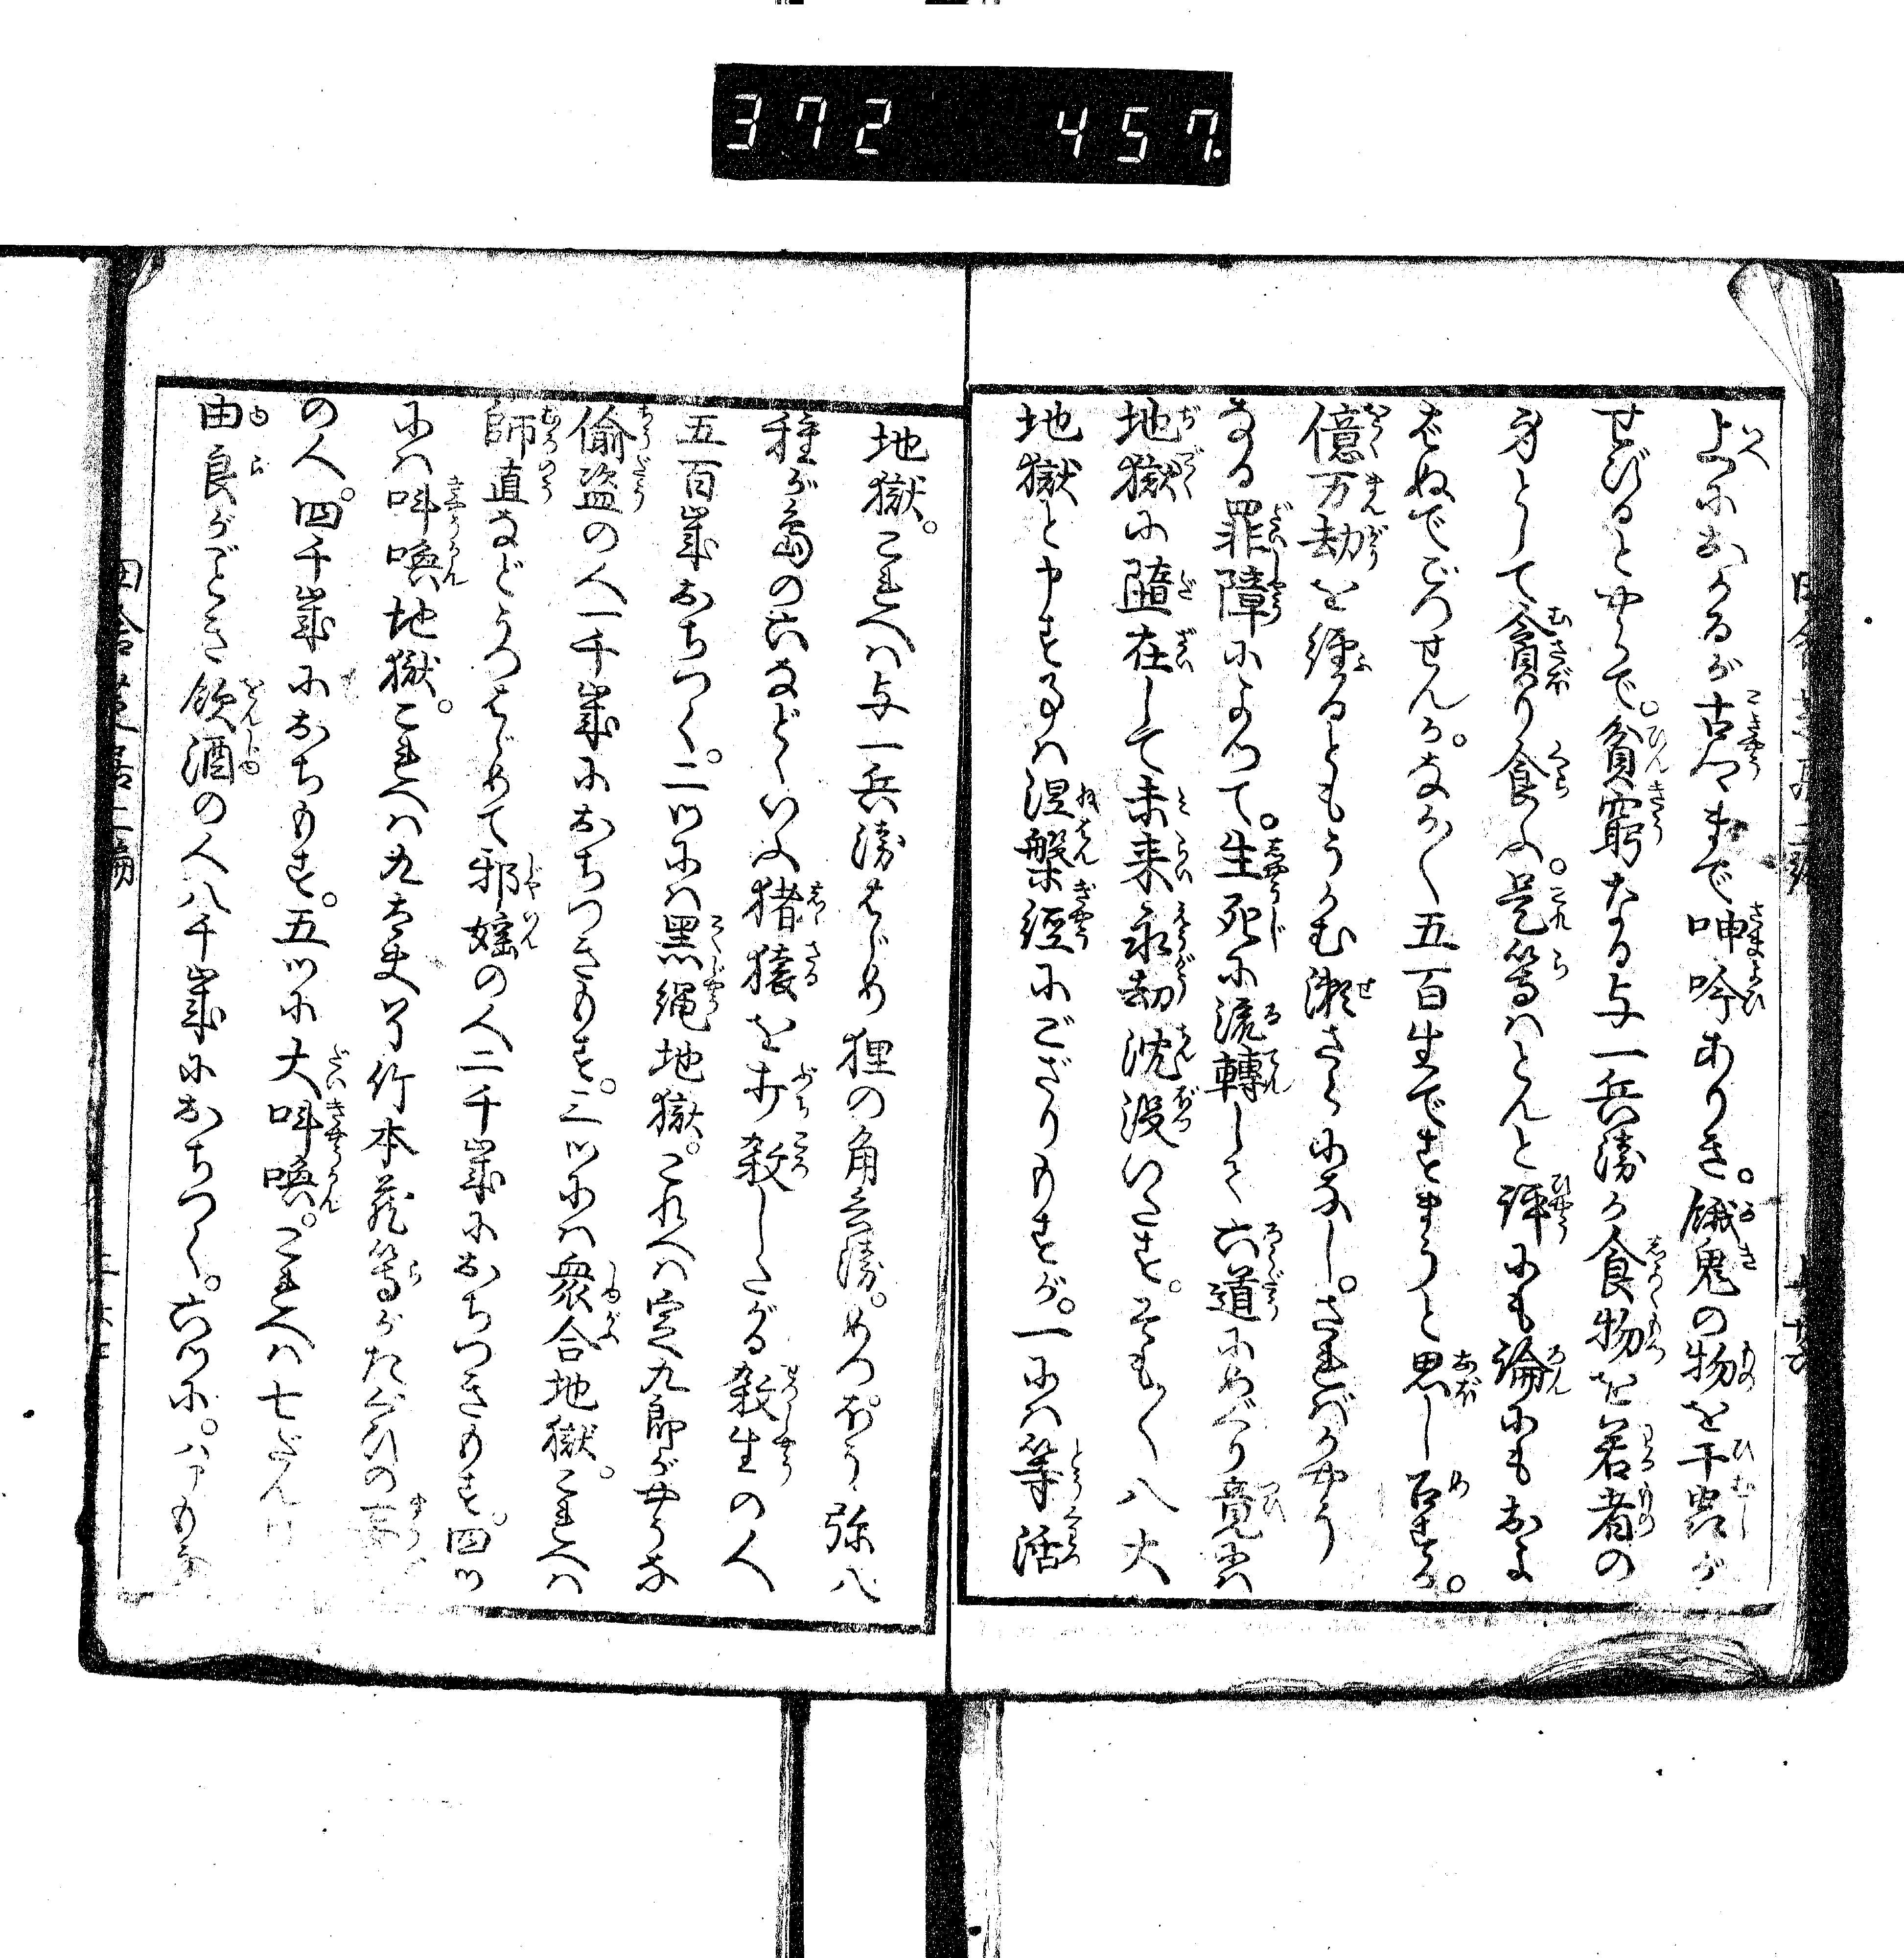 372 457.
上におゐるが古今まで呻吟ありき。餓鬼の物を干虫が
せびるとやらで。貧窮なる与一兵衛が食物を若者の
身として貪り食ふ。是等はとんと評にも論にもおよ
ばぬでごつせんが。なか〳〵五百生ですまうと思し召すか。
億万劫を経るともうかむ瀬さらになし。さればかやう
なる罪障によつて。生死に流轉して六道にめぐり竟には
地獄に随在して未来永劫沈没いたす。そも〳〵八大
地獄と申する事は涅槃経にござりもすが。一には等活
地獄。これへは与一兵衛をはじめ狸の角兵衛。めつぽう弥八
種が島の六などゝいふ猪猿を打殺したがる殺生の人
五百歳おちつく。二ツには黒縄地獄。これへは定九郎がやうな
偸盗の人一千歳におちつきもす。三ツには衆合地獄。これへは
師直などうつはじめて邪婬の人二千歳におちつきもす。四ツ
には叫喚地獄。これへは九太夫并竹本蔵等がたぐひの
の人。四千歳におちもす。五ツに大叫喚。これへは七だん
由良がごとき飲酒の人八千歳におちつく。六ツに。ハアもし